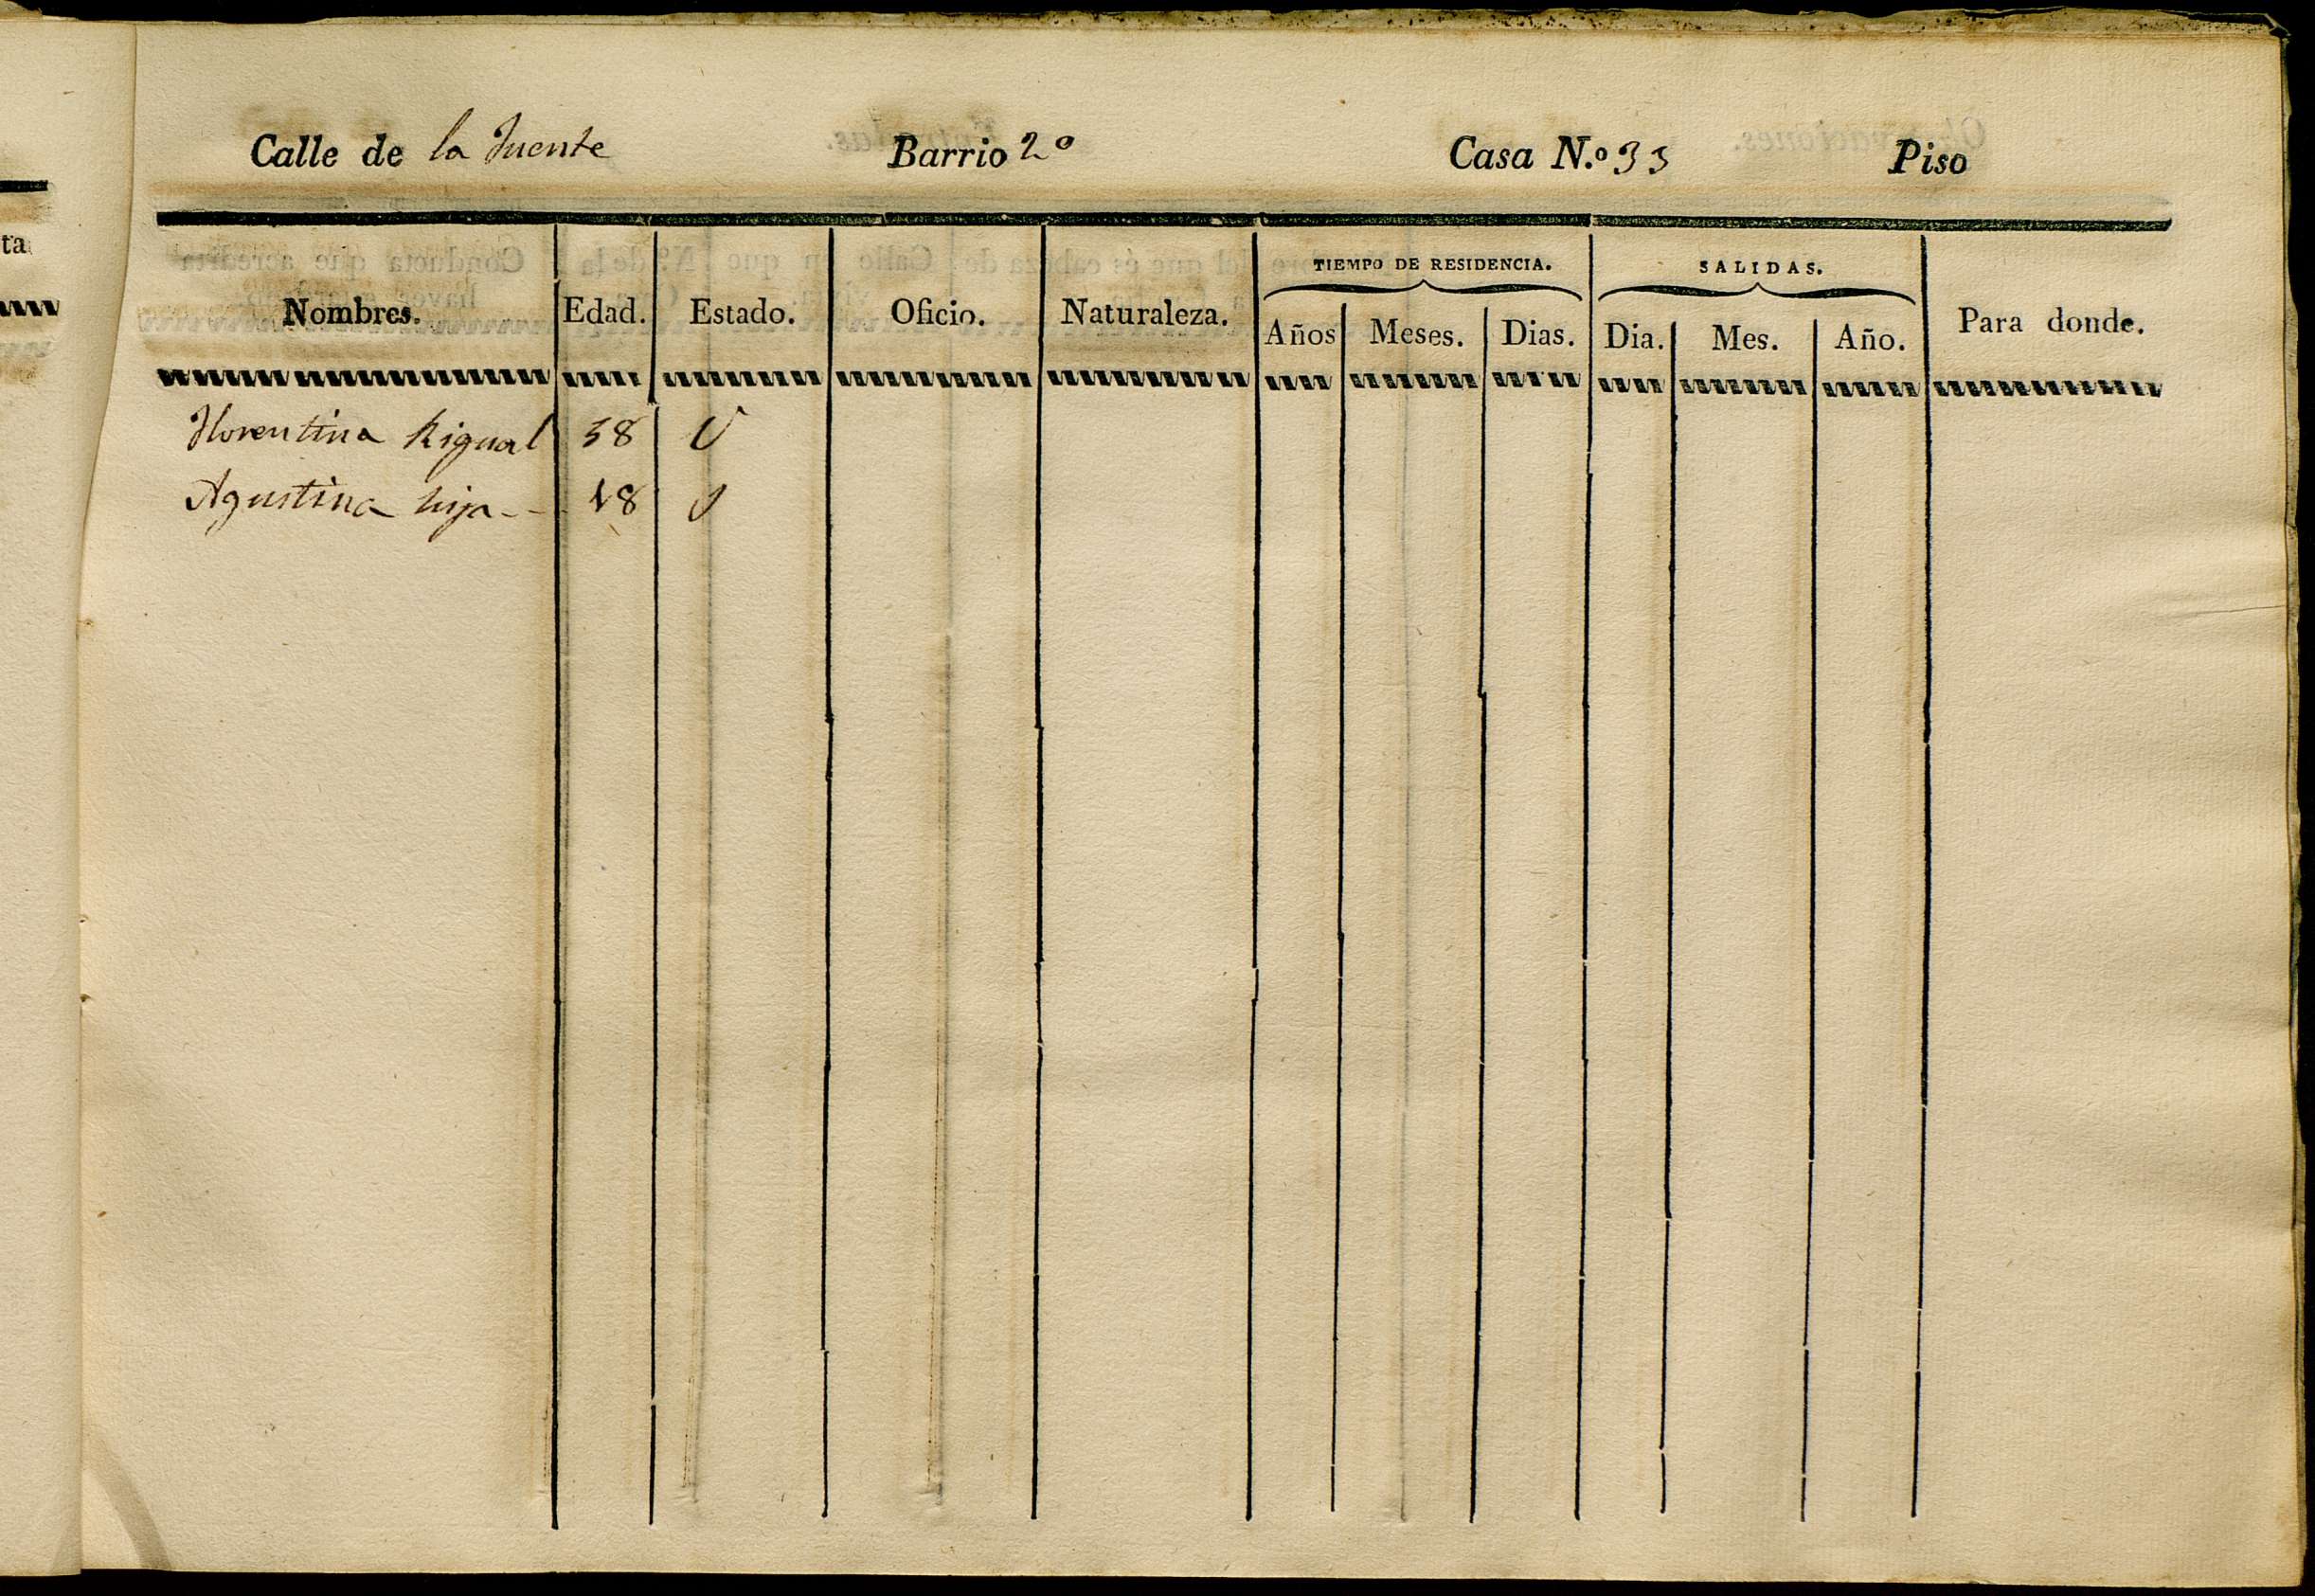 Calle de la Fuente Barrio 2º Casa N.º 33 Piso
ta
TIEMPO DE RESIDENCIA. SALIDAS.
Nombres. Edad. Estado. Oficio. Naturaleza. Años Meses. Dias. Dia. Mes. Año. Para donde.
Florentina Rigual 38 V
Agustina hija - - 18 S